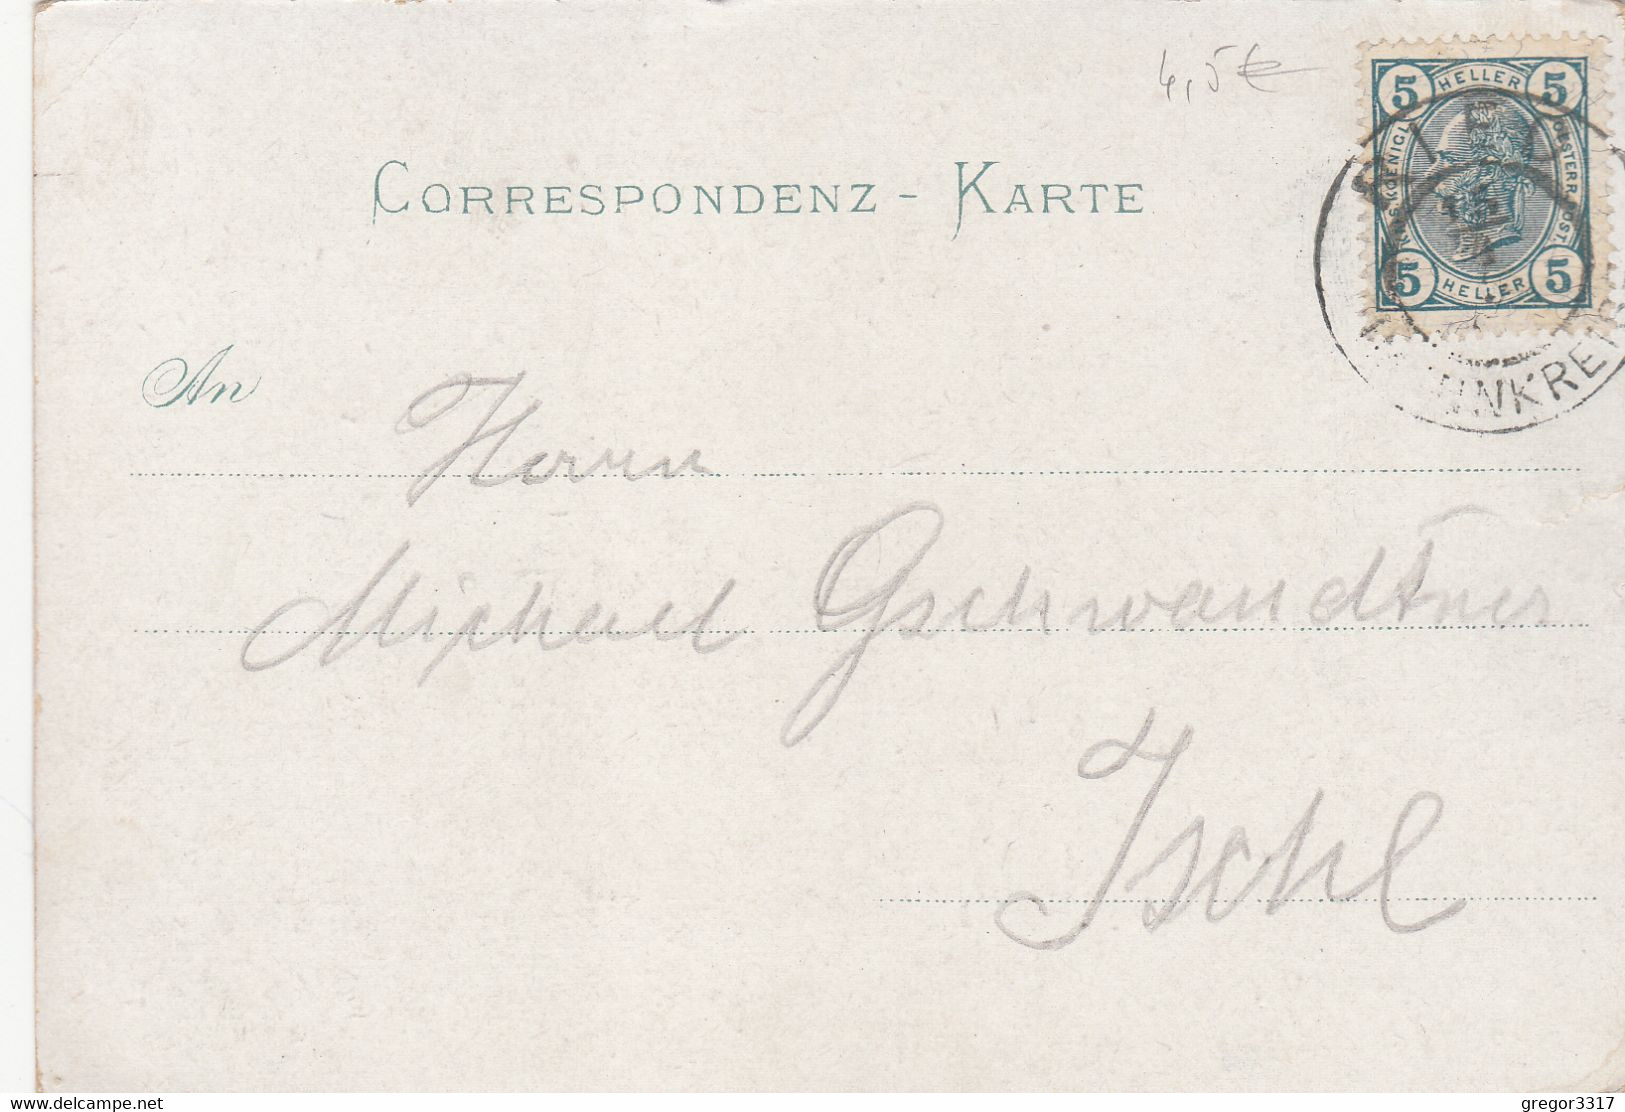 4,5€
5 HELLER 5
KAIS. KOENIGL. OESTERR. POST.
5 HELLER 5
CORRESPONDENZ - KARTE
INNKREIS
An
Herrn
Michael Gschwandtner
Ischl
www.delcampe.net
gregor3317